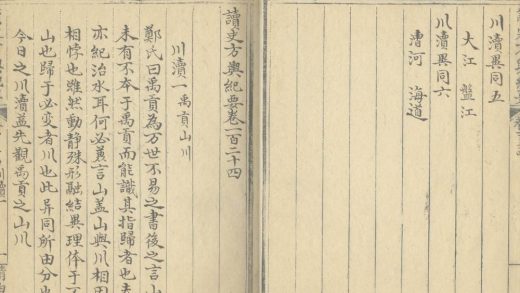 川瀆異同五
大江 盤江
川瀆異同六
漕河 海道
讀史方輿紀要卷一百二十四
川瀆一 禹貢山川
鄭氏曰禹貢為万世不易之書後之言山
未有不本于禹貢而能識其指歸者也
亦紀治水耳何必兼言山盖山與川相因
相悖也雖然動静殊形融結異理体于不
山也歸于必变者川也此异同所由分也
今日之川瀆盖先觀禹貢之山川